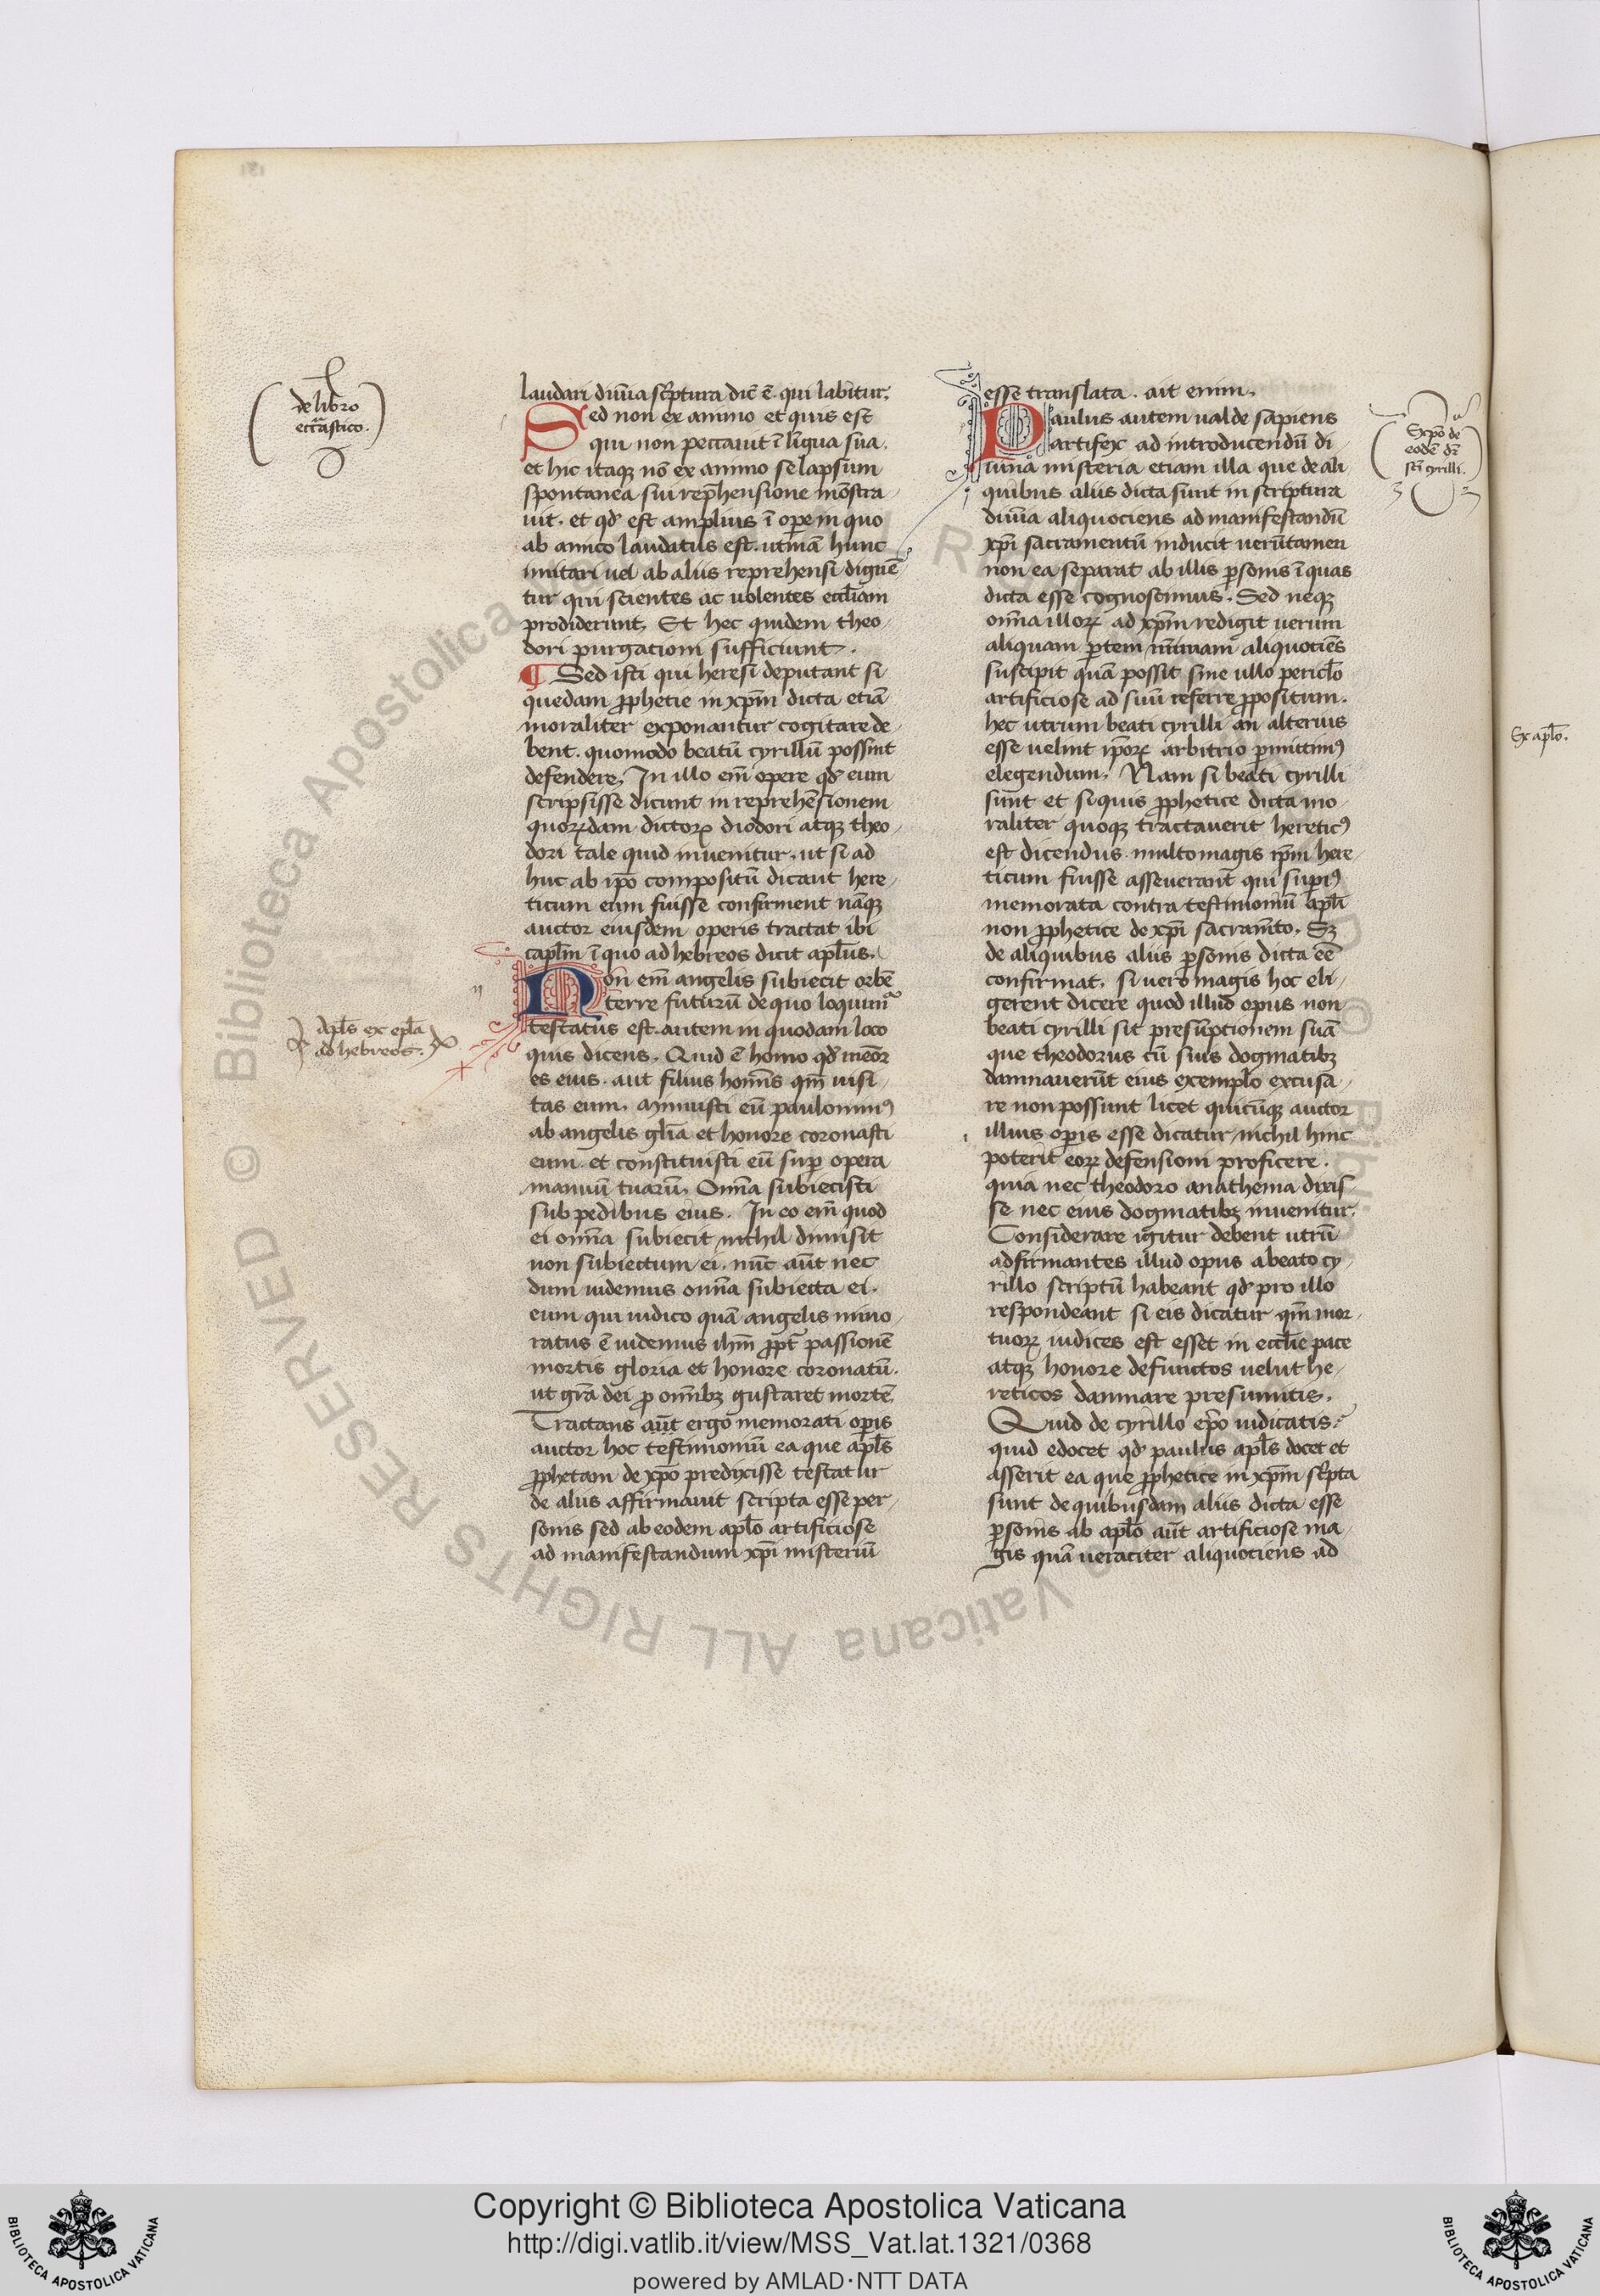 de libro
eccl̄iastico.
laudari diuīa sc̄ptura dic̄ ē. qui labitur,
Sed non ex animo et quis est
qui non peccauit ī līgua sua.
et hic itaqꝫ nō ex animo se lapsum
spontanea sui rep̄hensione mōstra
uit. et qd̓ est amplius ī oꝑe in quo
ab amico laudatus est. utinā hunc
imitari uel ab aliis reprehensi dignē
tur qui scientes ac uolentes eccl̄iam
prodiderunt. Et hec quidem theo
dori purgationi sufficiunt.
¶ Sed isti qui heresī deputant si
quedam ꝓphetie in xp̄m dicta etiā
moraliter exponantur cogitare de
bent. quomodo beatū cyrillū possint
defendere. In illo em̄ opere qd̓ eum
scripsisse dicunt in reprehēsionem
quoꝝdam dictoꝝ diodori atqꝫ theo
dori tale quid inuenitur. ut si ad
huc ab ip̄o compositū dicant here
ticum eum fuisse confirment nāqꝫ
auctor eiusdem operis tractat ibi
capl̄m ī quo ad hebreos dicit apl̄us.
Non em̄ angelis subiecit orbē
terre futurū de quo loquimur
Apl̄s ex epl̄a
ad hebreos.
testatus est. autem in quodam loco
quis dicens. Quid ē homo qd̓ meōr
es eius. aut filius homīs qm̄ uisi
tas eum. Minuisti eū paulominꝰ
ab angelis gl̄ia et honore coronasti
eum. et constituisti eū suꝑ opera
manuū tuarū. Omīa subiecisti
sub pedibus eius. In eo em̄ quod
ei omīa subiecit nichil dimisit
non subiectum ei. nūc aūt nec
dum uidemus omīa subiecta ei.
eum qui modico quā angelis mino
ratus ē uidemus ihm̄ ꝓpt̄ passionē
mortis gloria et honore coronatū.
ut gr̄a dei ꝓ omībꝫ gustaret mortē.
Tractans aūt ergo memorati oꝑis
auctor hoc testimoniū ea que apl̄s
ꝓphetam de xp̄o predixisse testatur
de aliis affirmauit scripta esse per
sonis sed ab eodem apl̄o artificiose
ad manifestandum xp̄i misteriū
esse translata. ait enim.
Paulus autem ualde sapiens
artifex ad introducendū di
uina misteria etiam illa que de ali
quibus aliis dicta sunt in scriptura
diuīa aliquociens ad manifestandū
xp̄i sacramentū inducit uerūtamen
non ea separat ab illis ꝑsonis ī quas
dicta esse cognoscimus. Sed neqꝫ
omīa illoꝝ ad xp̄m redigit uerum
aliquam ꝑtem minimam aliquociēs
suscipit quā possit sine ullo pericl̄o
artificiose ad suū referre ꝓpositum.
hec utrum beati cyrilli an alterius
esse uelint ip̄oꝝ arbitrio ꝑmittimꝰ
elegendum. Nam si beati cyrilli
sunt et si quis ꝓphetice dicta mo
raliter quoqꝫ tractauerit hereticꝰ
est dicendus multomagis ip̄m here
ticum fuisse asseuerant qui suꝑiꝰ
memorata contra testimoniū apl̄i
non ꝓphetice de xp̄i sacram̄to. Sꝫ
de aliquibus aliis ꝑsonis dicta eē
confirmat. si uero magis hoc eli
gerent dicere quod illud opus non
beati cyrilli sit presūptionem suā
que theodorus cū suis dogmatibꝫ
damnauerūt eius exemplo excusa
re non possunt licet quicūqꝫ auctor
illius oꝑis esse dicatur nichil hinc
poterit eoꝝ defensioni proficere.
quia nec theodoro anathema dixis
se nec eius dogmatibꝫ inuenitur.
Considerare igitur debent utrū
adfirmantes illud opus a beato cy
rillo scriptū habeant qd̓ pro illo
respondeant si eis dicatur qm̄ mor
tuoꝝ iudices est esset in eccl̄ie pace
atqꝫ honore defunctos uelut he
reticos damnare presumitis.
Quid de cyrillo ep̄o iudicatis?
quid edocet qd̓ paulus apl̄s docet et
asserit ea que ꝓphetice in xp̄m sc̄pta
sunt de quibusdam aliis dicta esse
ꝑsonis ab apl̄o aūt artificiose ma
gis quā ueraciter aliquociens ad
Expō de
eodē dr̄
sc̄i cyrilli.
Ex apl̄o.
Copyright © Biblioteca Apostolica Vaticana
http://digi.vatlib.it/view/MSS_Vat.lat.1321/0368
powered by AMLAD·NTT DATA
BIBLIOTECA APOSTOLICA VATICANA
BIBLIOTECA APOSTOLICA VATICANA
© Biblioteca Apostolica Vaticana ALL RIGHTS RESERVED